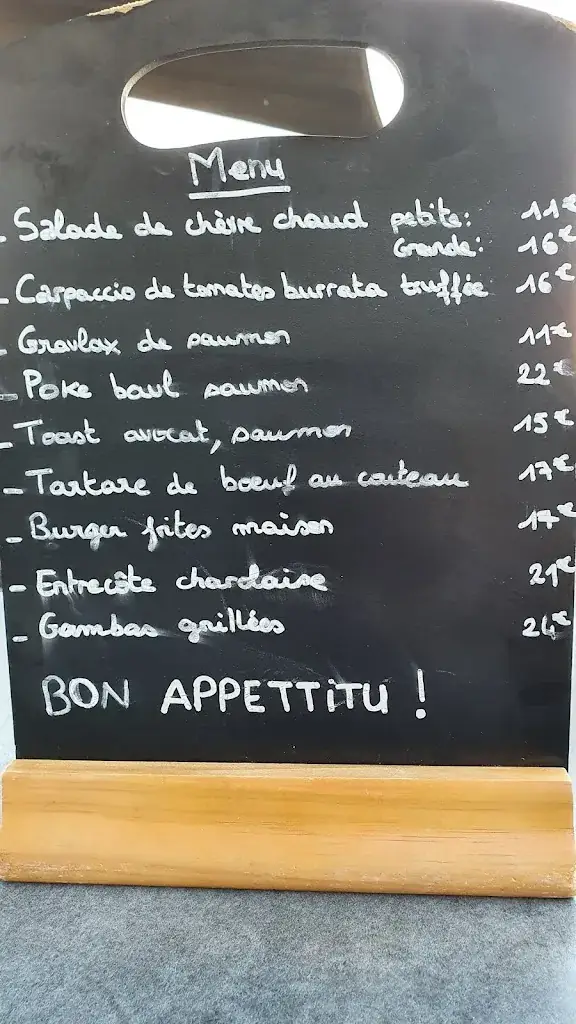 Menu
- Salade de chèvre chaud petite: 11€
Grande: 16€
- Carpaccio de tomates burrata truffée 16€
- Gravlax de saumon 11€
- Poke bawl saumon 22€
- Toast avocat, saumon 15€
- Tartare de boeuf au couteau 17€
- Burger frites maison 17€
- Entrecôte charolaise 21€
- Gambas grillées 24€
BON APPETTiTU !